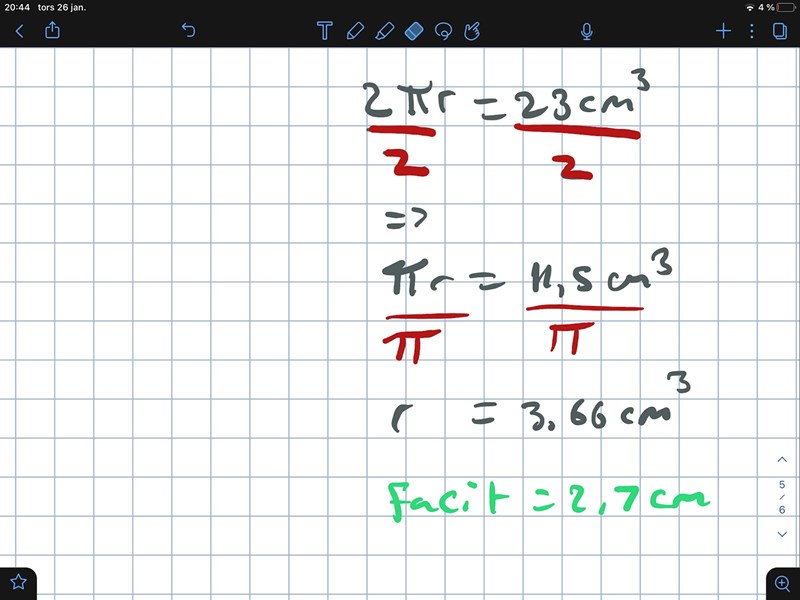 20:44 tors 26 jan.
4 %
2πr = 23 cm³
2 2
=>
πr = 11,5 cm³
π π
r = 3.66 cm³
Facit = 2,7 cm
5
/
6